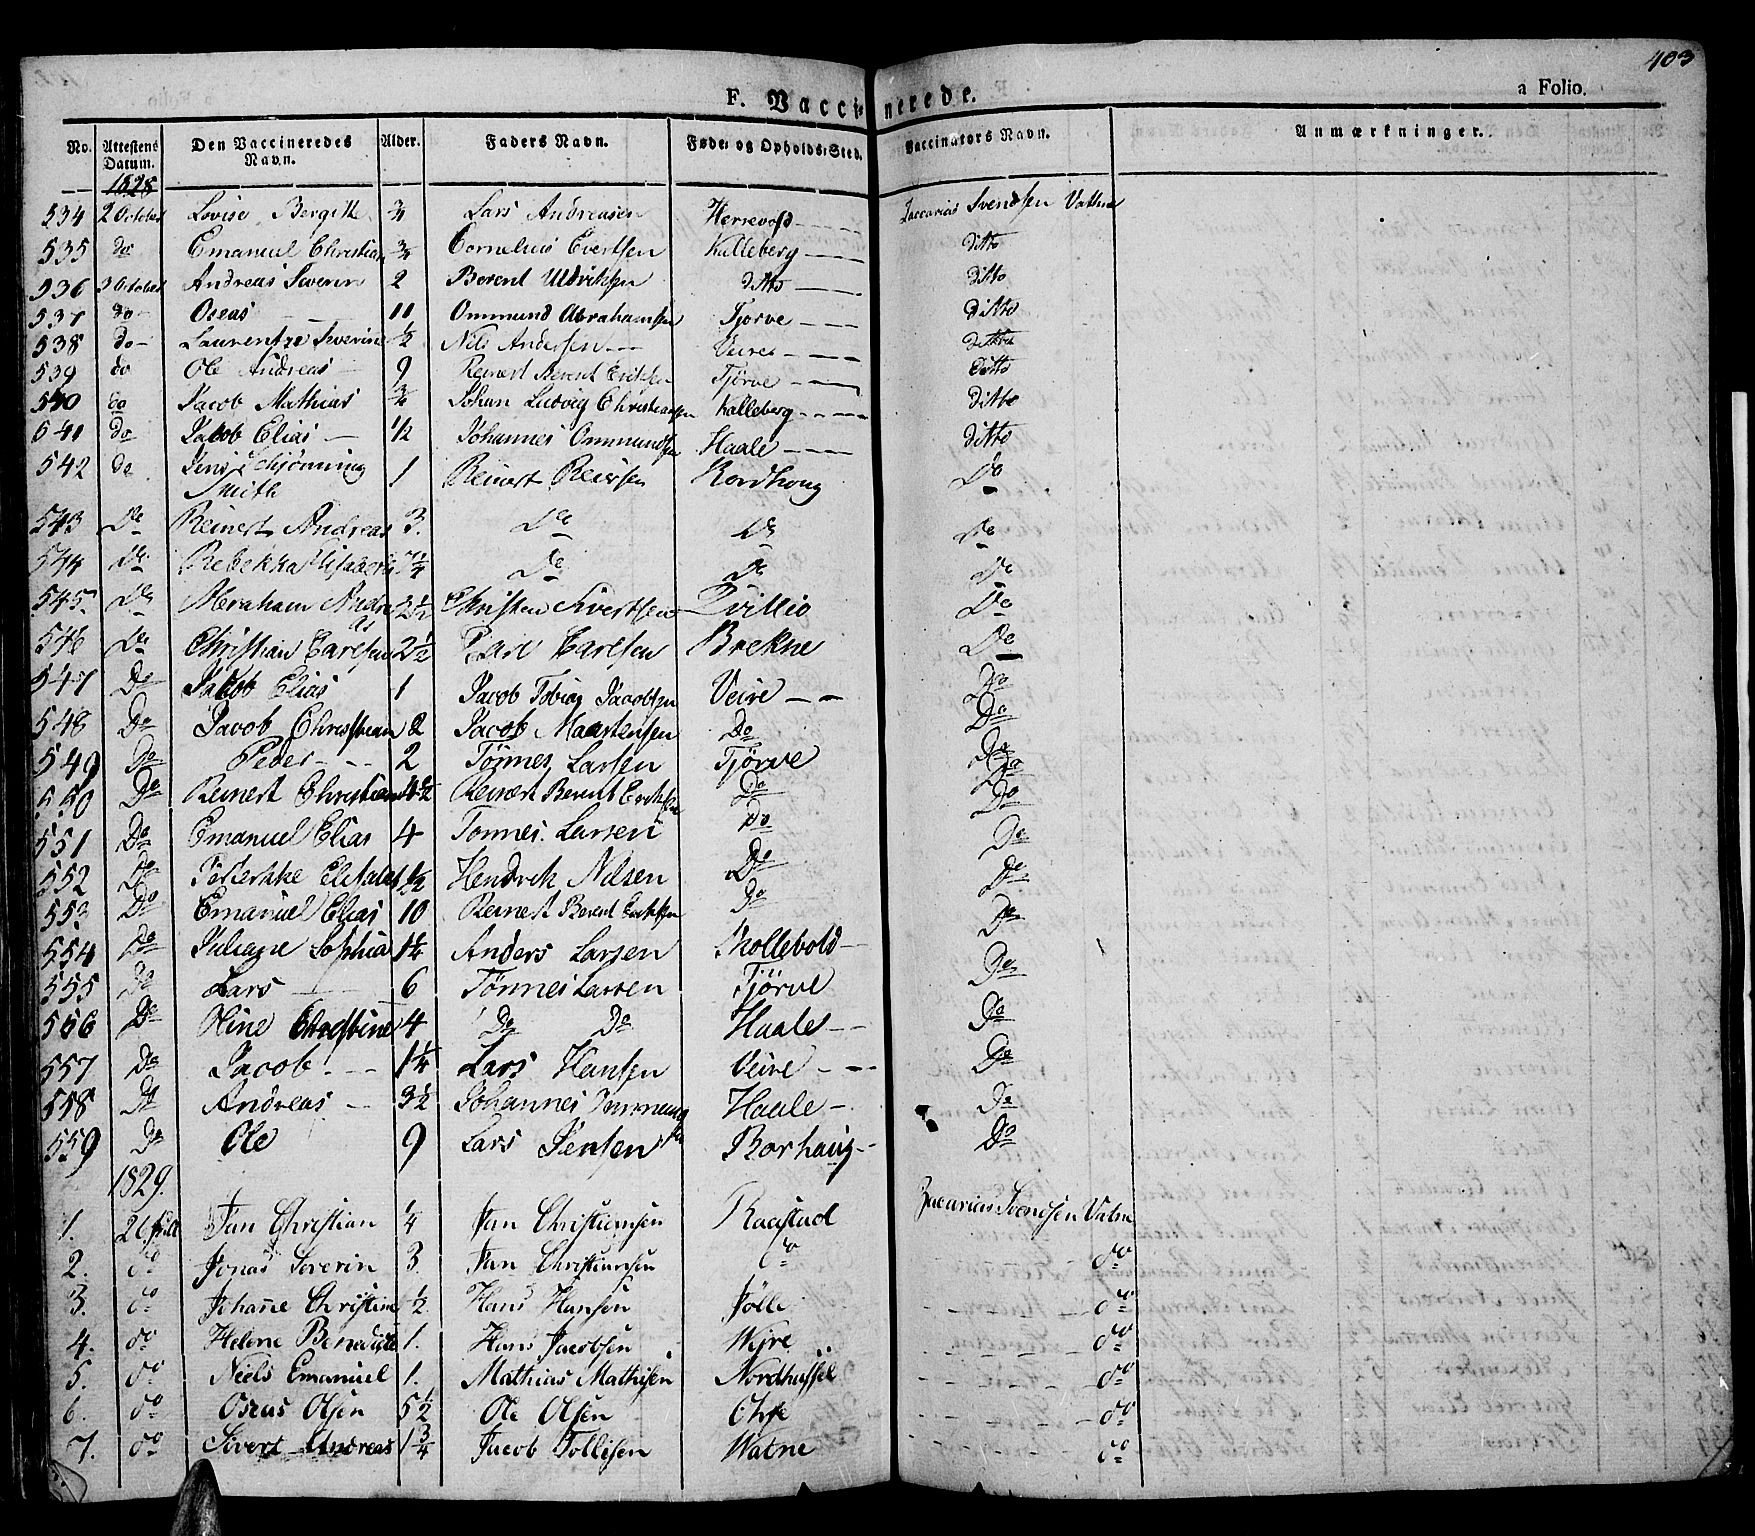 403
F. Vaccinerede. a Folio.
No. Attestens Datum. Den Vaccineredes Navn. Alder. Faders Navn. Føde- og Opholds-Sted. Vaccinators Navn. Anmærkninger.
1828
534 2 October Lovise Bergitte 3/4 Lars Andreasen Herrevold Zaccarias Svendsen Vatne
535 do Emanuel Christian 3/4 Cornelius Evertsen Kalleberg ditto
536 3 October Andreas Severin 2 Berent Uldriksen ditto ditto
537 do Oseas 11 Ommund Abrahamsen Tjorve ditto
538 do Laurentze Severine 1/2 Nils Andersen Veires ditto
539 do Ole Andreas 9 Reinert Berent Eriksen Tjörve ditto
540 do Jacob Mathias 3/4 Johan Ludvig Christiansen Kalleberg ditto
541 do Jacob Elias 1/2 Johannes Ommundsen Haale ditto
542 do Jens Schjönning Smith 1 Reinert Reiersen Nordhoug Do
543 Do Reinert Andreas 3. Do Do Do
544 Do Rebekka Elisabeth Do Do Do
545 Do Abraham Andreas 2 1/2 Christen Sivertsen Qvillio Do
546 Do Christian Carlsen 2 1/2 Carl Carlsen Brekne Do
547 Do Jacob Elias 1 Jacob Tobias Jacobsen Veire Do
548 Do Jacob Christian 2 Jacob Maartensen Do Do
549 Do Peder 2 Tönnes Larsen Tjörve Do
550 Do Reinert Christian Reinert Berent Eriksen Do Do
551 Do Emanuel Elias 4 Tonnes Larsen Do Do
552 Do Elisabet 1 1/2 Hendrik Nilsen Do Do
553 Do Emanuel Elias 10 Reinert Berent Eriksen Do Do
554 Do Juliane Sophia 1 1/4 Anders Larsen Skollevold Do
555 Do Lars 6 Tönnes Larsen Tjörve Do
556 Do Oline Christine 4 Do Do Haales Do
557 Do Jacob 1 1/4 Lars Hansen Veire Do
558 Do Andreas 3 1/2 Johannes Haale Do
559 Do Ole 9 Lars Jensen Borhaug Do
1829.
1. 2 April Jan Christian 1/4 Jan Christiansen Raastad Zacarias Svendsen Vatne
2. do Jonas Severin 3. Jan Christiansen do do
3. do Johanne Christine 1/2 Hans Hansen Jölle do
4. do Helene Benedicte 1. Hans Jacobsen Wejre do
5. do Niels Emanuel 1. Mathias Mathisen Nordhassel do
6. do Oseas Olsen 5 1/2 Ole Olsen Ohre do
7. do Sivert Andreas 1 3/4 Jacob Tollisen Watne do